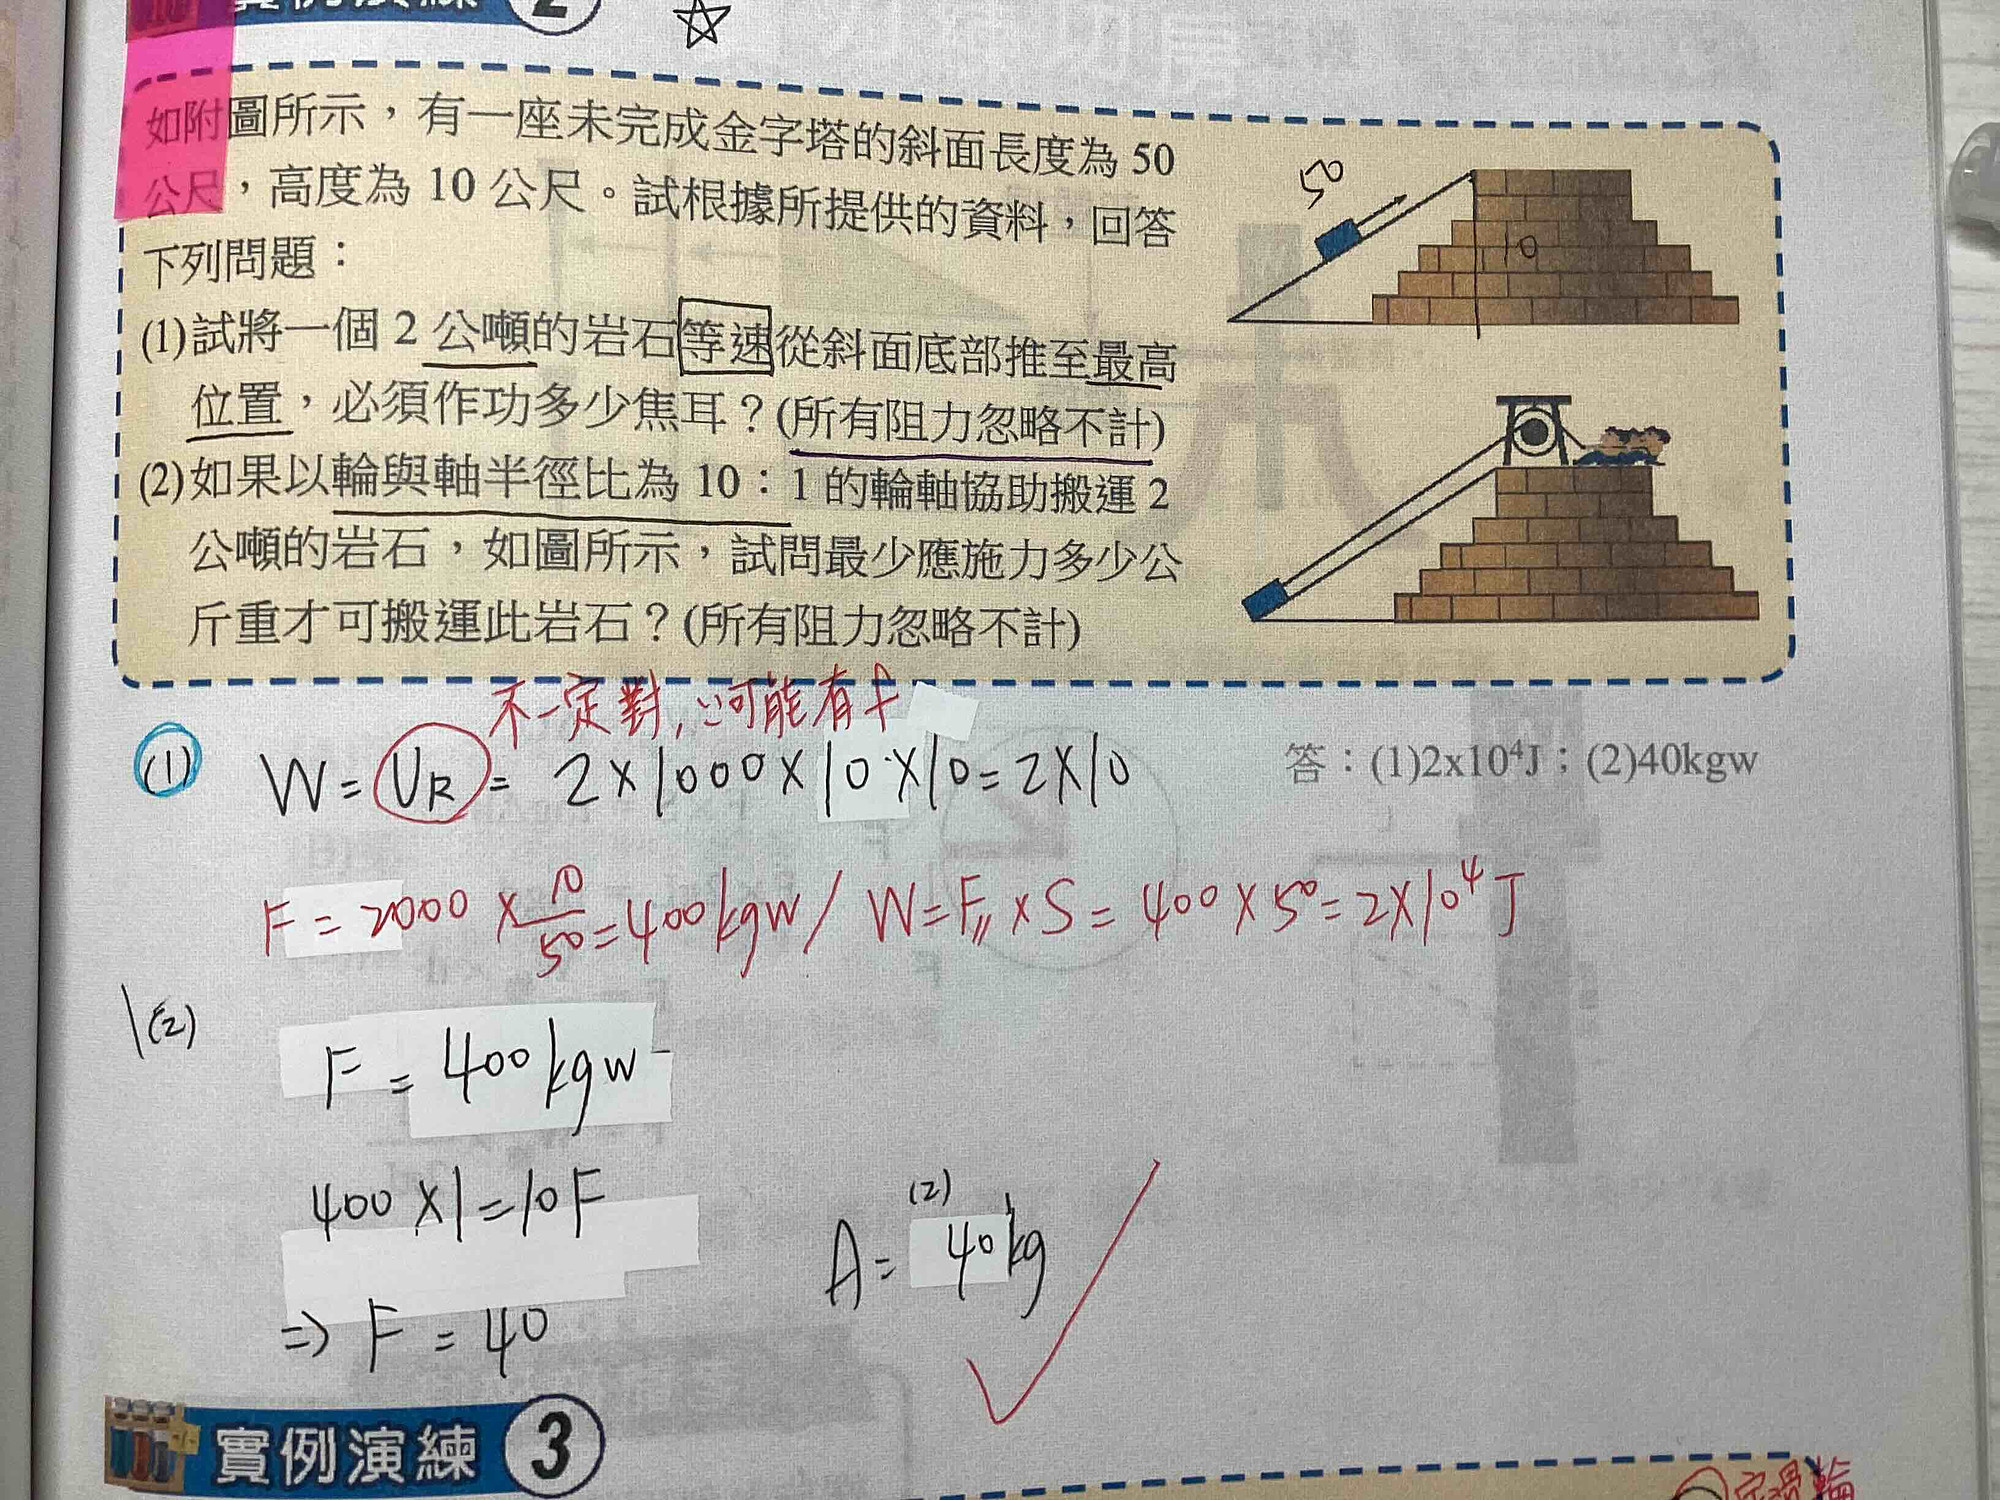 ☆
如附圖所示，有一座未完成金字塔的斜面長度為 50
公尺，高度為 10 公尺。試根據所提供的資料，回答
下列問題：
(1)試將一個 2 公噸的岩石等速從斜面底部推至最高
位置，必須作功多少焦耳？(所有阻力忽略不計)
(2)如果以輪與軸半徑比為 10：1 的輪軸協助搬運 2
公噸的岩石，如圖所示，試問最少應施力多少公
斤重才可搬運此岩石？(所有阻力忽略不計)
50
10
不一定對，∵可能有f
(1) W = UR = 2×1000×10×10=2×10
答：(1)2x10⁴J；(2)40kgw
F = 2000 × 10/50 = 400kgw / W=F∥×S = 400×50=2×10⁴ J
(2)
F = 400kgw
400×1=10F
⇒ F = 40
(2)
A= 40kg
實例演練 3
定滑輪